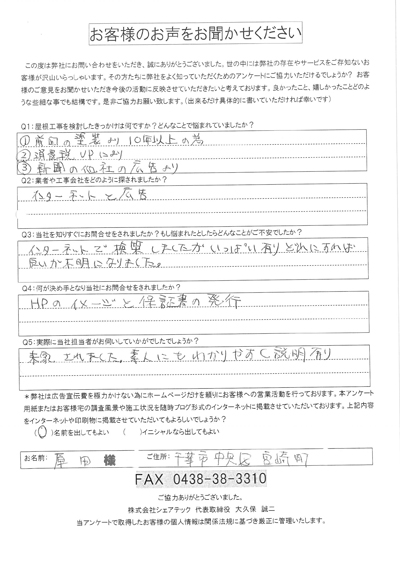 お客様のお声をお聞かせください
この度は弊社にお問い合わせをいただき、誠にありがとうございました。世の中には弊社の存在やサービスをご存知ないお
客様が沢山いらっしゃいます。その方たちに弊社をよく知っていただくためのアンケートにご協力いただけるでしょうか? お客
様のご意見をお聞かせいただき今後の活動に反映させていただきたいと考えております。良かったこと、嬉しかったことどのよ
うな些細な事でも結構です。是非ご協力お願い致します。(出来るだけ具体的に書いていただければ幸いです)
Q1:屋根工事を検討したきっかけは何ですか?どんなことで悩まれていましたか?
①前回の塗装より10年以上の為
②消費税UPにより
③新聞の他社の広告より
Q2:業者や工事会社をどのように探されましたか?
インターネットと広告
Q3:当社を知りすぐにお問合せをされましたか?もし悩まれたとしたらどんなことがご不安でしたか?
インターネットで検索しましたがいっぱい有りどれにすれば
良いか不明になりました。
Q4:何が決め手となり当社にお問合せをされましたか?
HPのイメージと保証書の発行
Q5:実際に当社担当者がお伺いしていかがでしたでしょうか?
素人にもわかりやすく説明有り
*弊社は広告宣伝費を極力かけない為にホームページだけを頼りにお客様への営業活動を行っております。本アンケート
用紙またはお客様宅の調査風景や施工状況を随時ブログ形式のインターネットに掲載させていただいております。上記内容
をインターネットや印刷物に掲載させていただいてもよろしいでしょうか?
(○)名前を出してもよい ( )イニシャルなら出してもよい
お名前: 原田 様 ご住所: 千葉市中央区宮崎町
FAX 0438-38-3310
ご協力ありがとうございました。
株式会社シェアテック 代表取締役 大久保 誠二
当アンケートで取得したお客様の個人情報は関係法規に基づき厳正に管理いたします。